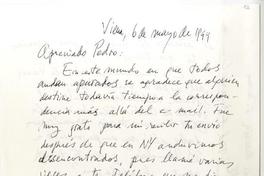 Viena, 6 de mayo de 1999
Apreciado Pedro:
En este mundo en que todos
andan apurados se agradece que alguien
destine todavía tiempo a la correspon-
dencia más allá del e-mail. Fue
muy grato para mí recibir tu envío
después de que en NY anduvimos
desencontrados, pues llamé varias
veces a tu